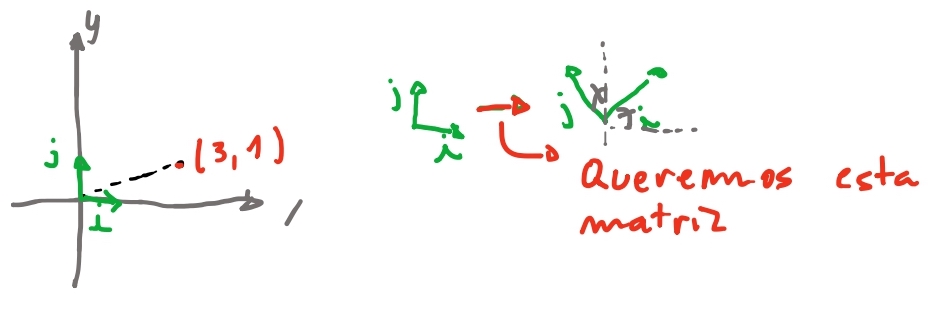 y
j
i
(3,1)
j
i
j
i
Queremos esta
matriz